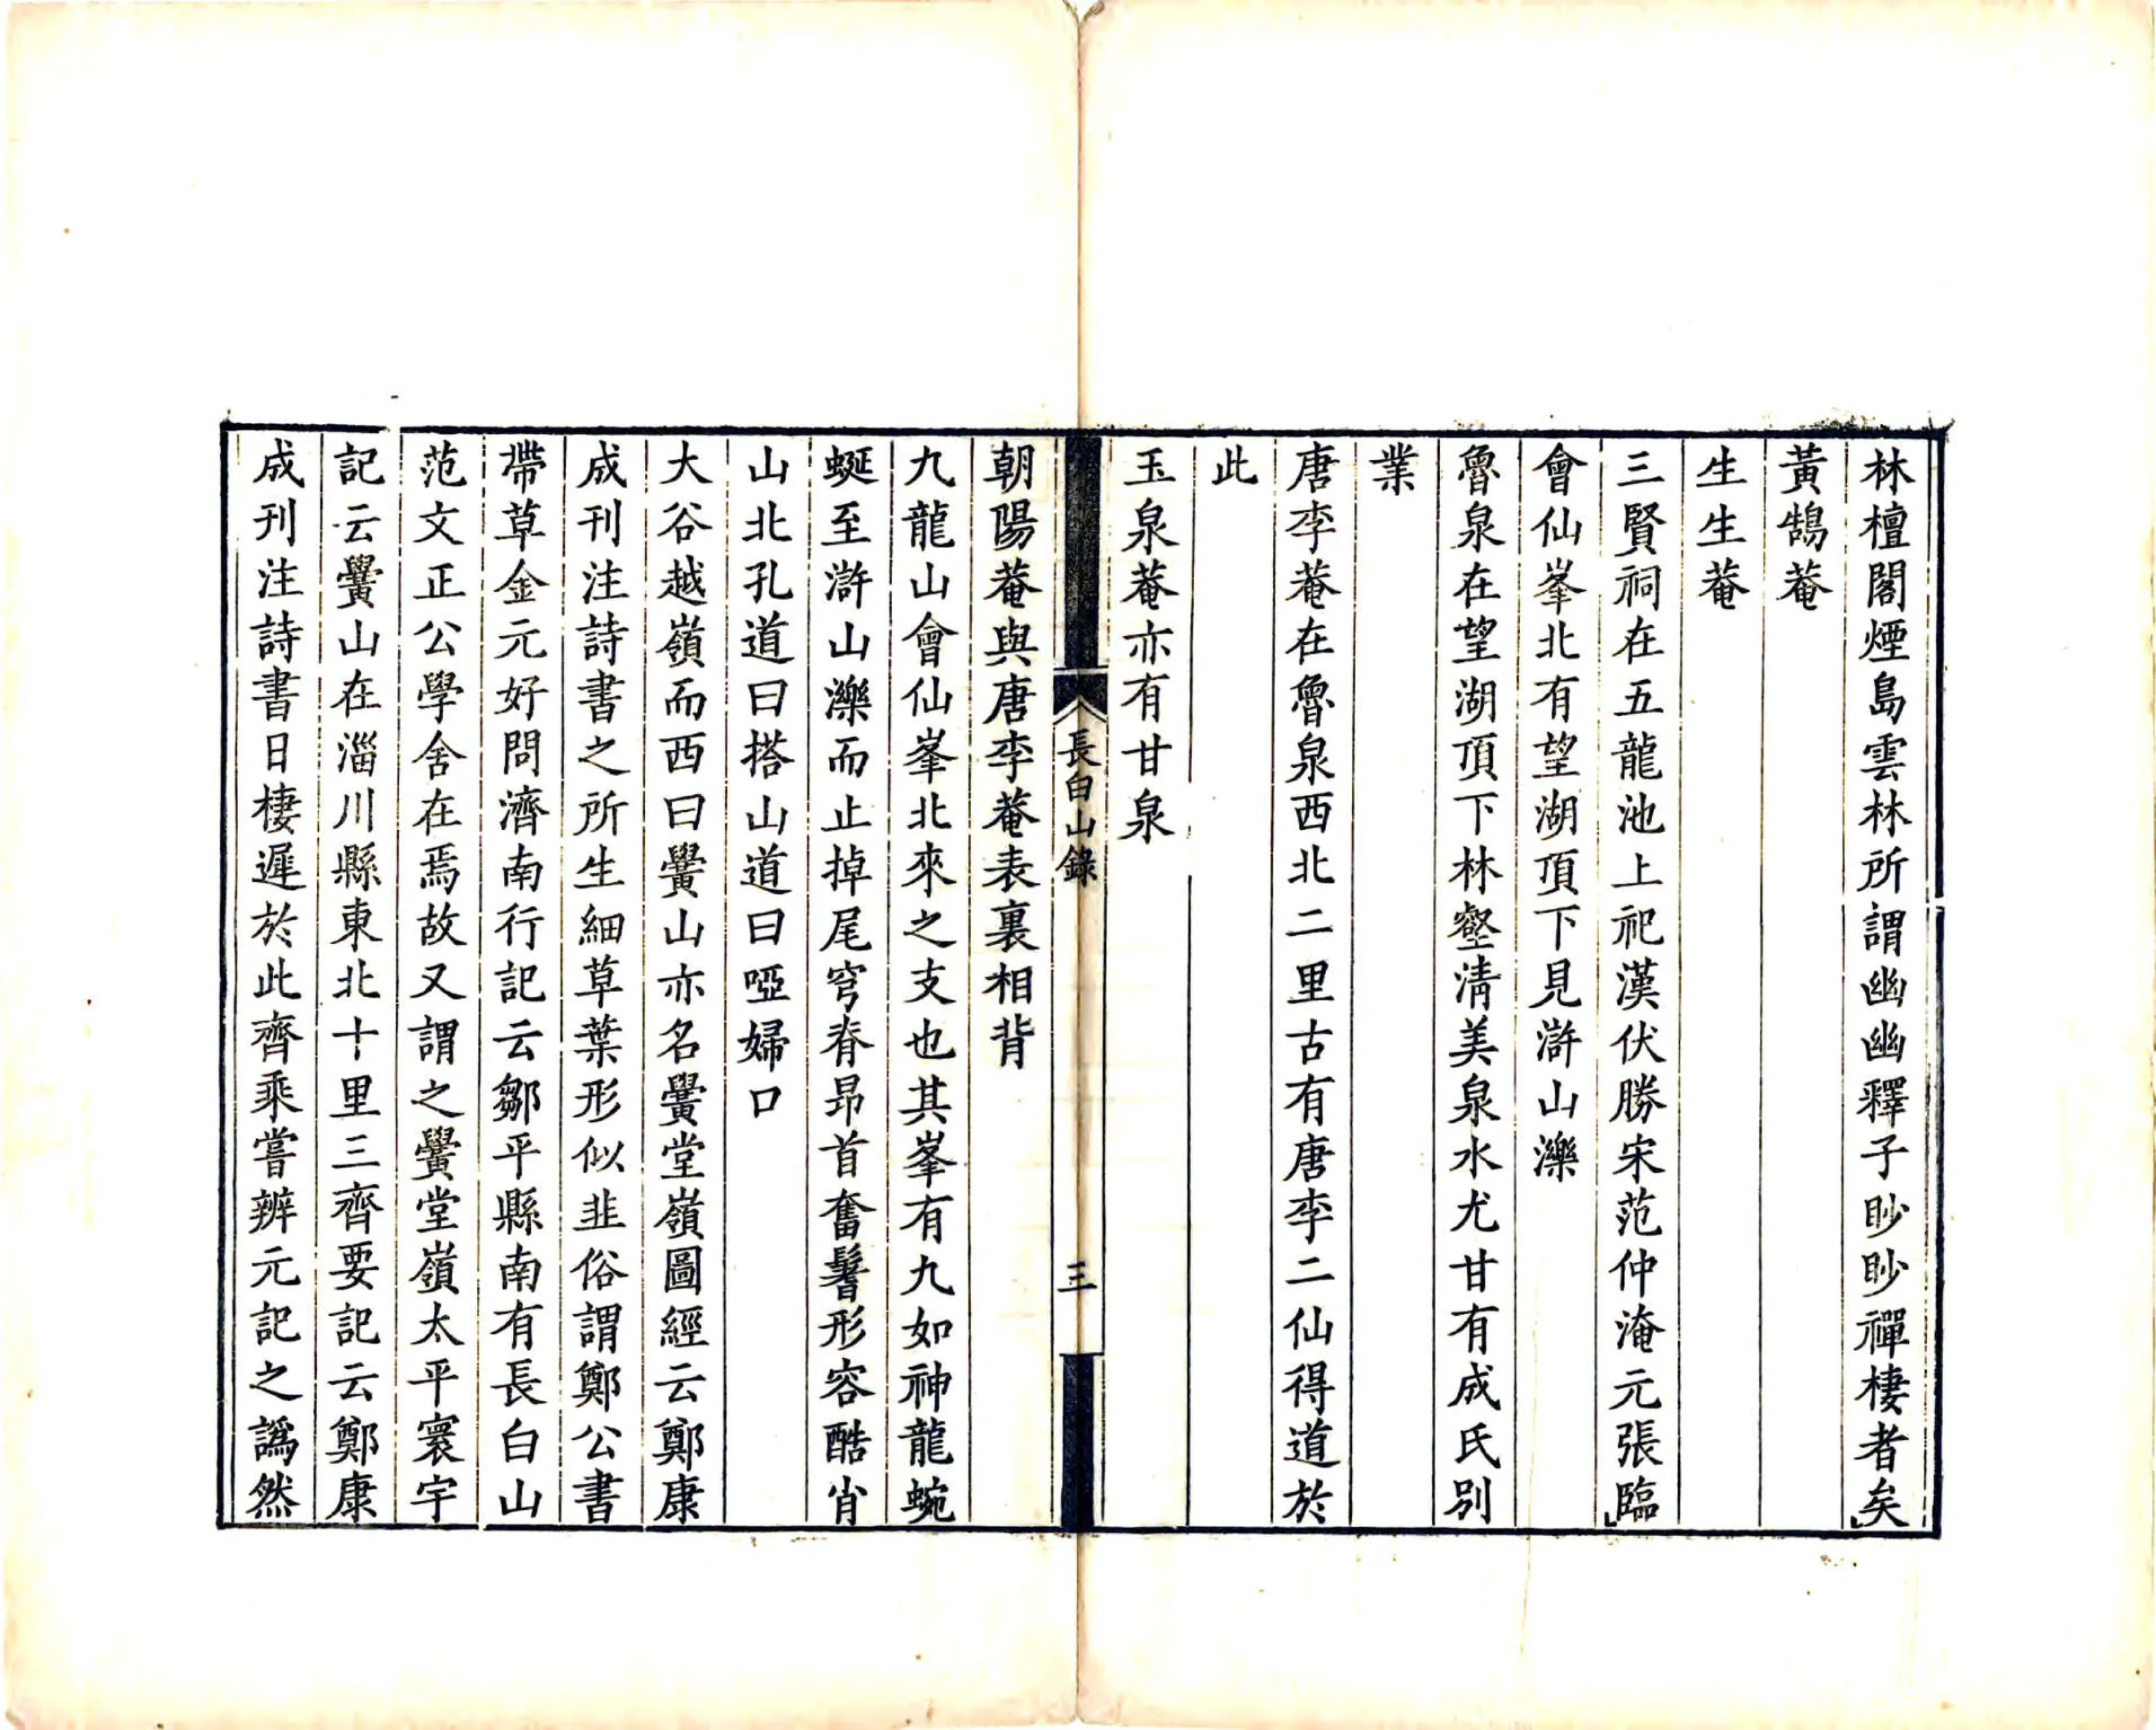 林檀閣煙島雲林所謂幽幽釋子眇眇禪棲者矣
黃鵠菴
生生菴
三賢祠在五龍池上祀漢伏勝宋范仲淹元張臨
會仙峯北有望湖頂下見滸山濼
魯泉在望湖頂下林壑清美泉水尤甘有成氏別
業
唐李菴在魯泉西北二里古有唐李二仙得道於
此
玉泉菴亦有甘泉
長白山錄
三
朝陽菴與唐李菴表裏相背
九龍山會仙峯北來之支也其峯有九如神龍蜿
蜒至滸山濼而止掉尾穹脊昻首奮鬐形容酷肖
山北孔道曰搭山道曰啞婦口
大谷越嶺而西曰黌山亦名黌堂嶺圖經云鄭康
成刊注詩書之所生細草葉形似韭俗謂鄭公書
帶草金元好問濟南行記云鄒平縣南有長白山
范文正公學舍在焉故又謂之黌堂嶺太平寰宇
記云黌山在淄川縣東北十里三齊要記云鄭康
成刊注詩書日棲遲於此齊乘嘗辨元記之譌然